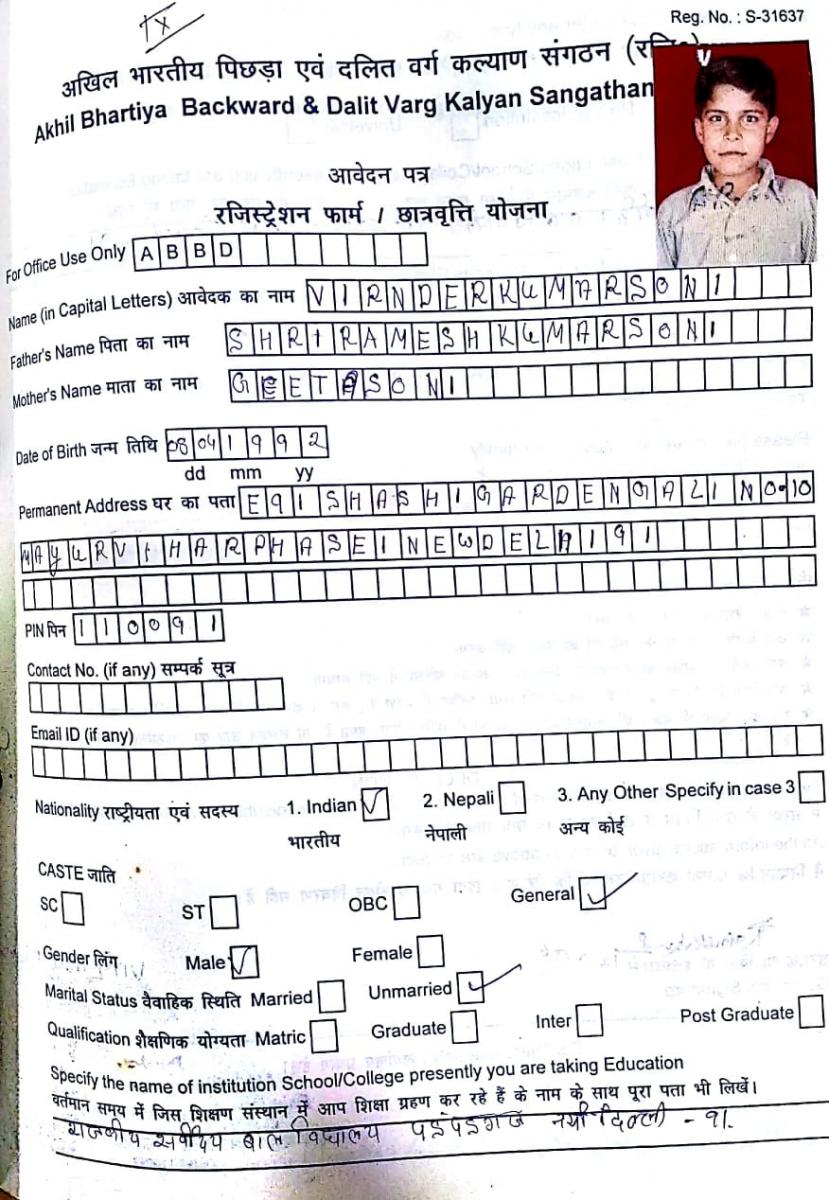 IX
Reg. No. : S-31637
अखिल भारतीय पिछड़ा एवं दलित वर्ग कल्याण संगठन
Akhil Bhartiya Backward & Dalit Varg Kalyan Sangathan
आवेदन पत्र
रजिस्ट्रेशन फार्म / छात्रवृत्ति योजना
For Office Use Only A B B D
Name (in Capital Letters) आवेदक का नाम V I R N D E R K U M A R S O N I
Father's Name पिता का नाम S H R I R A M E S H K U M A R S O N I
Mother's Name माता का नाम G E E T A S O N I
Date of Birth जन्म तिथि 08 04 1 9 9 2
dd mm yy
Permanent Address घर का पता E 9 1 S H A S H I G A R D E N G A L I N O. 10
M A Y U R V I H A R P H A S E I N E W D E L H I 9 1
PIN पिन 1 1 0 0 9 1
Contact No. (if any) सम्पर्क सूत्र
Email ID (if any)
Nationality राष्ट्रीयता एवं सदस्य 1. Indian ✓ 2. Nepali 3. Any Other Specify in case 3
भारतीय नेपाली अन्य कोई
CASTE जाति
SC ST OBC General ✓
Gender लिंग Male ✓ Female
Marital Status वैवाहिक स्थिति Married Unmarried ✓
Qualification शैक्षणिक योग्यता Matric Graduate Inter Post Graduate
Specify the name of institution School/College presently you are taking Education
वर्तमान समय में जिस शिक्षण संस्थान में आप शिक्षा ग्रहण कर रहे हैं के नाम के साथ पूरा पता भी लिखें।
राजकीय सर्वोदय बाल विद्यालय पड़पड़गंज नयी दिल्ली - 91.